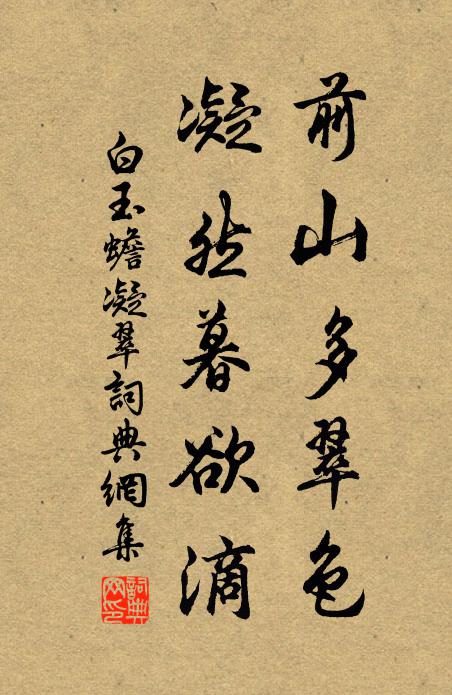 前山多翠色
凝然暮欲滴
白玉蟾凝翠詞典網集
詞典网印